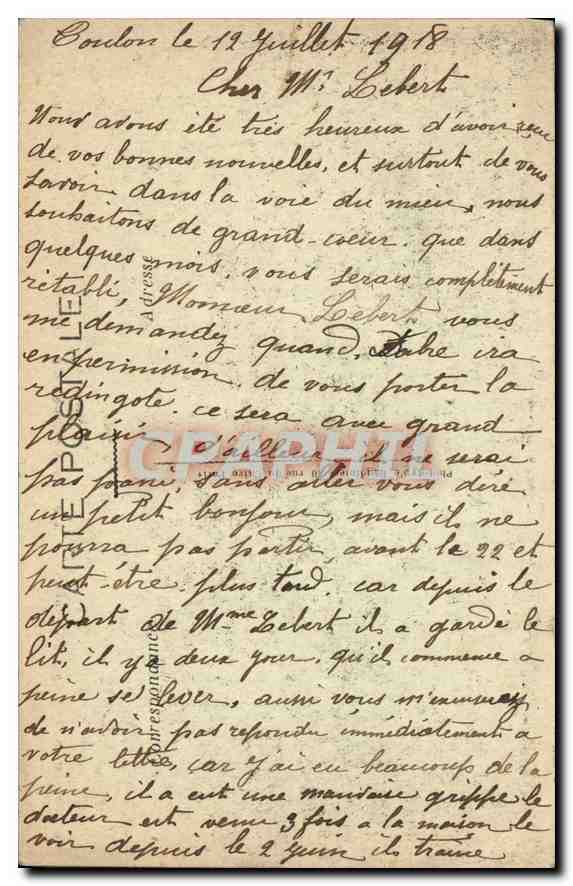 Toulon le 12 Juillet 1918
Cher Mr Lebert
Nous avons été très heureux d'avoir reçu
de vos bonnes nouvelles, et surtout de vous
savoir dans la voie du mieu, nous
souhaitons de grand-coeur. que dans
quelques mois. vous serais complètement
rétabli, Monsieur Lebert. vous
me demandez quand, ira
en permission. de vous porter la
redingote. ce sera avec grand
plaisir, d'ailleur, il ne serai
pas sans aller vous dire
un petit bonjour, mais il ne
pourra pas partir, avant le 22 et
peut-être. plus tard. car depuis le
départ de Mme Lebert il a gardé le
lit, il y a deux jour. qu'il commence a
peine se lever, aussi vous
de n'avoir pas repondu immédiatement a
votre lettre, car j'ai eu beaucoup de la
peine, il a eut une mauvaise grippe le
docteur est venu 3 fois a la maison le
voir depuis le 2 Juin il traine
CARTE POSTALE
Adresse
Correspondance
CPAPHIL